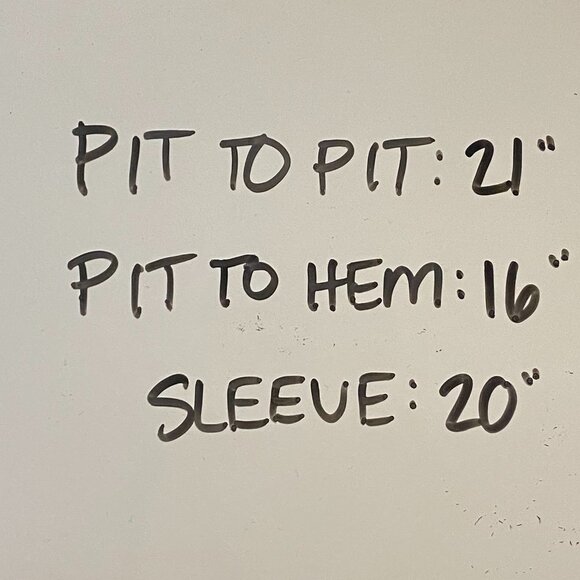 PIT TO PIT: 21"
PIT TO HEM: 16"
SLEEVE: 20"